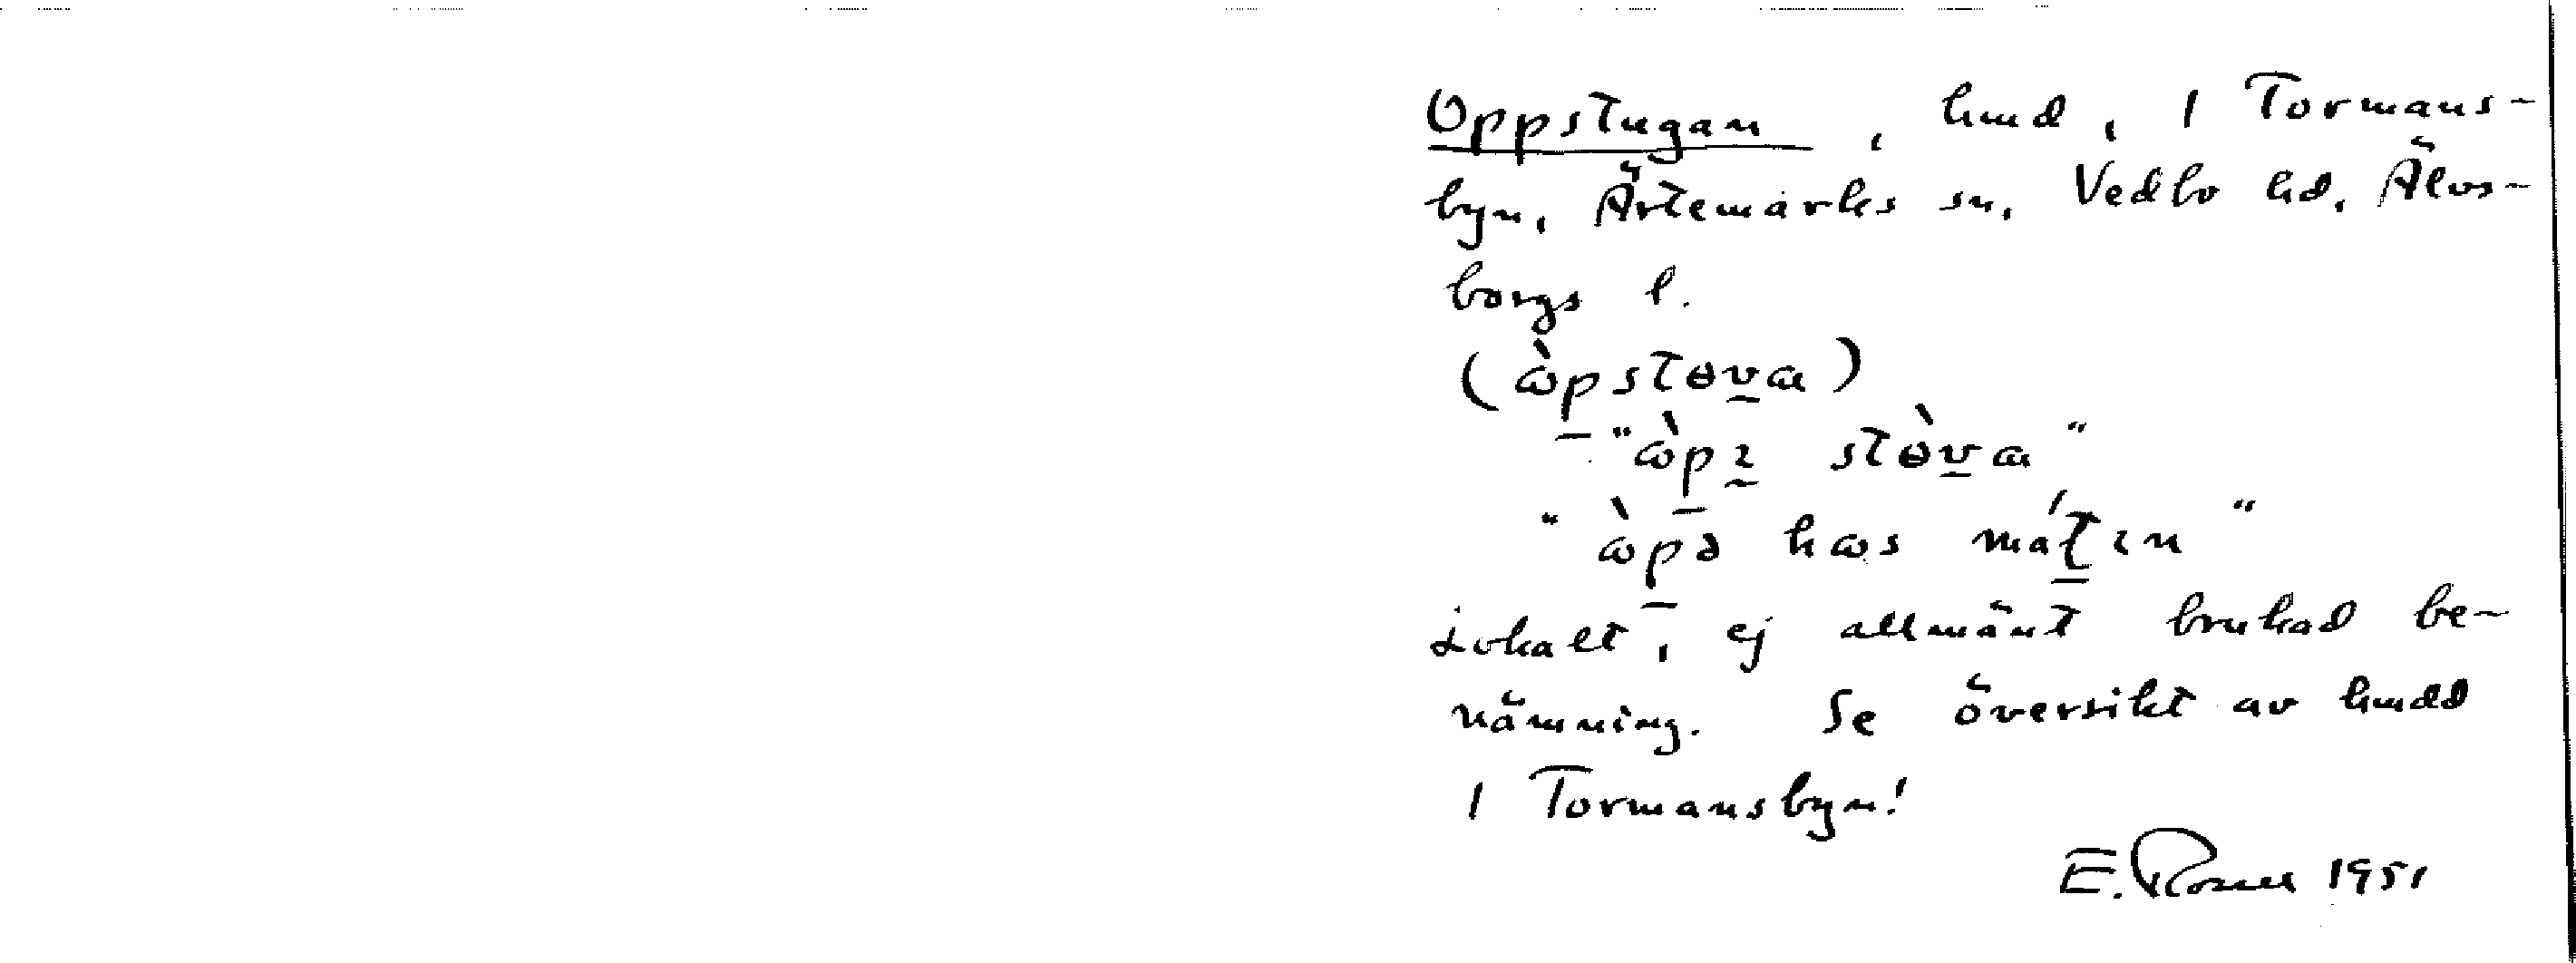 Oppstugan, hmd, i Tormans-
byn, Ärtemarks sn, Vedbo hd, Älvs-
borgs l.
(ɷ̀pstɵva)
"ɷ̀pɪ stɵ̀va"
"ɷ̀pə hɷs mátɪn"
Lokalt, ej allmänt brukad be-
nämning. Se översikt av hmdd
i Tormansbyn!
E. 1951